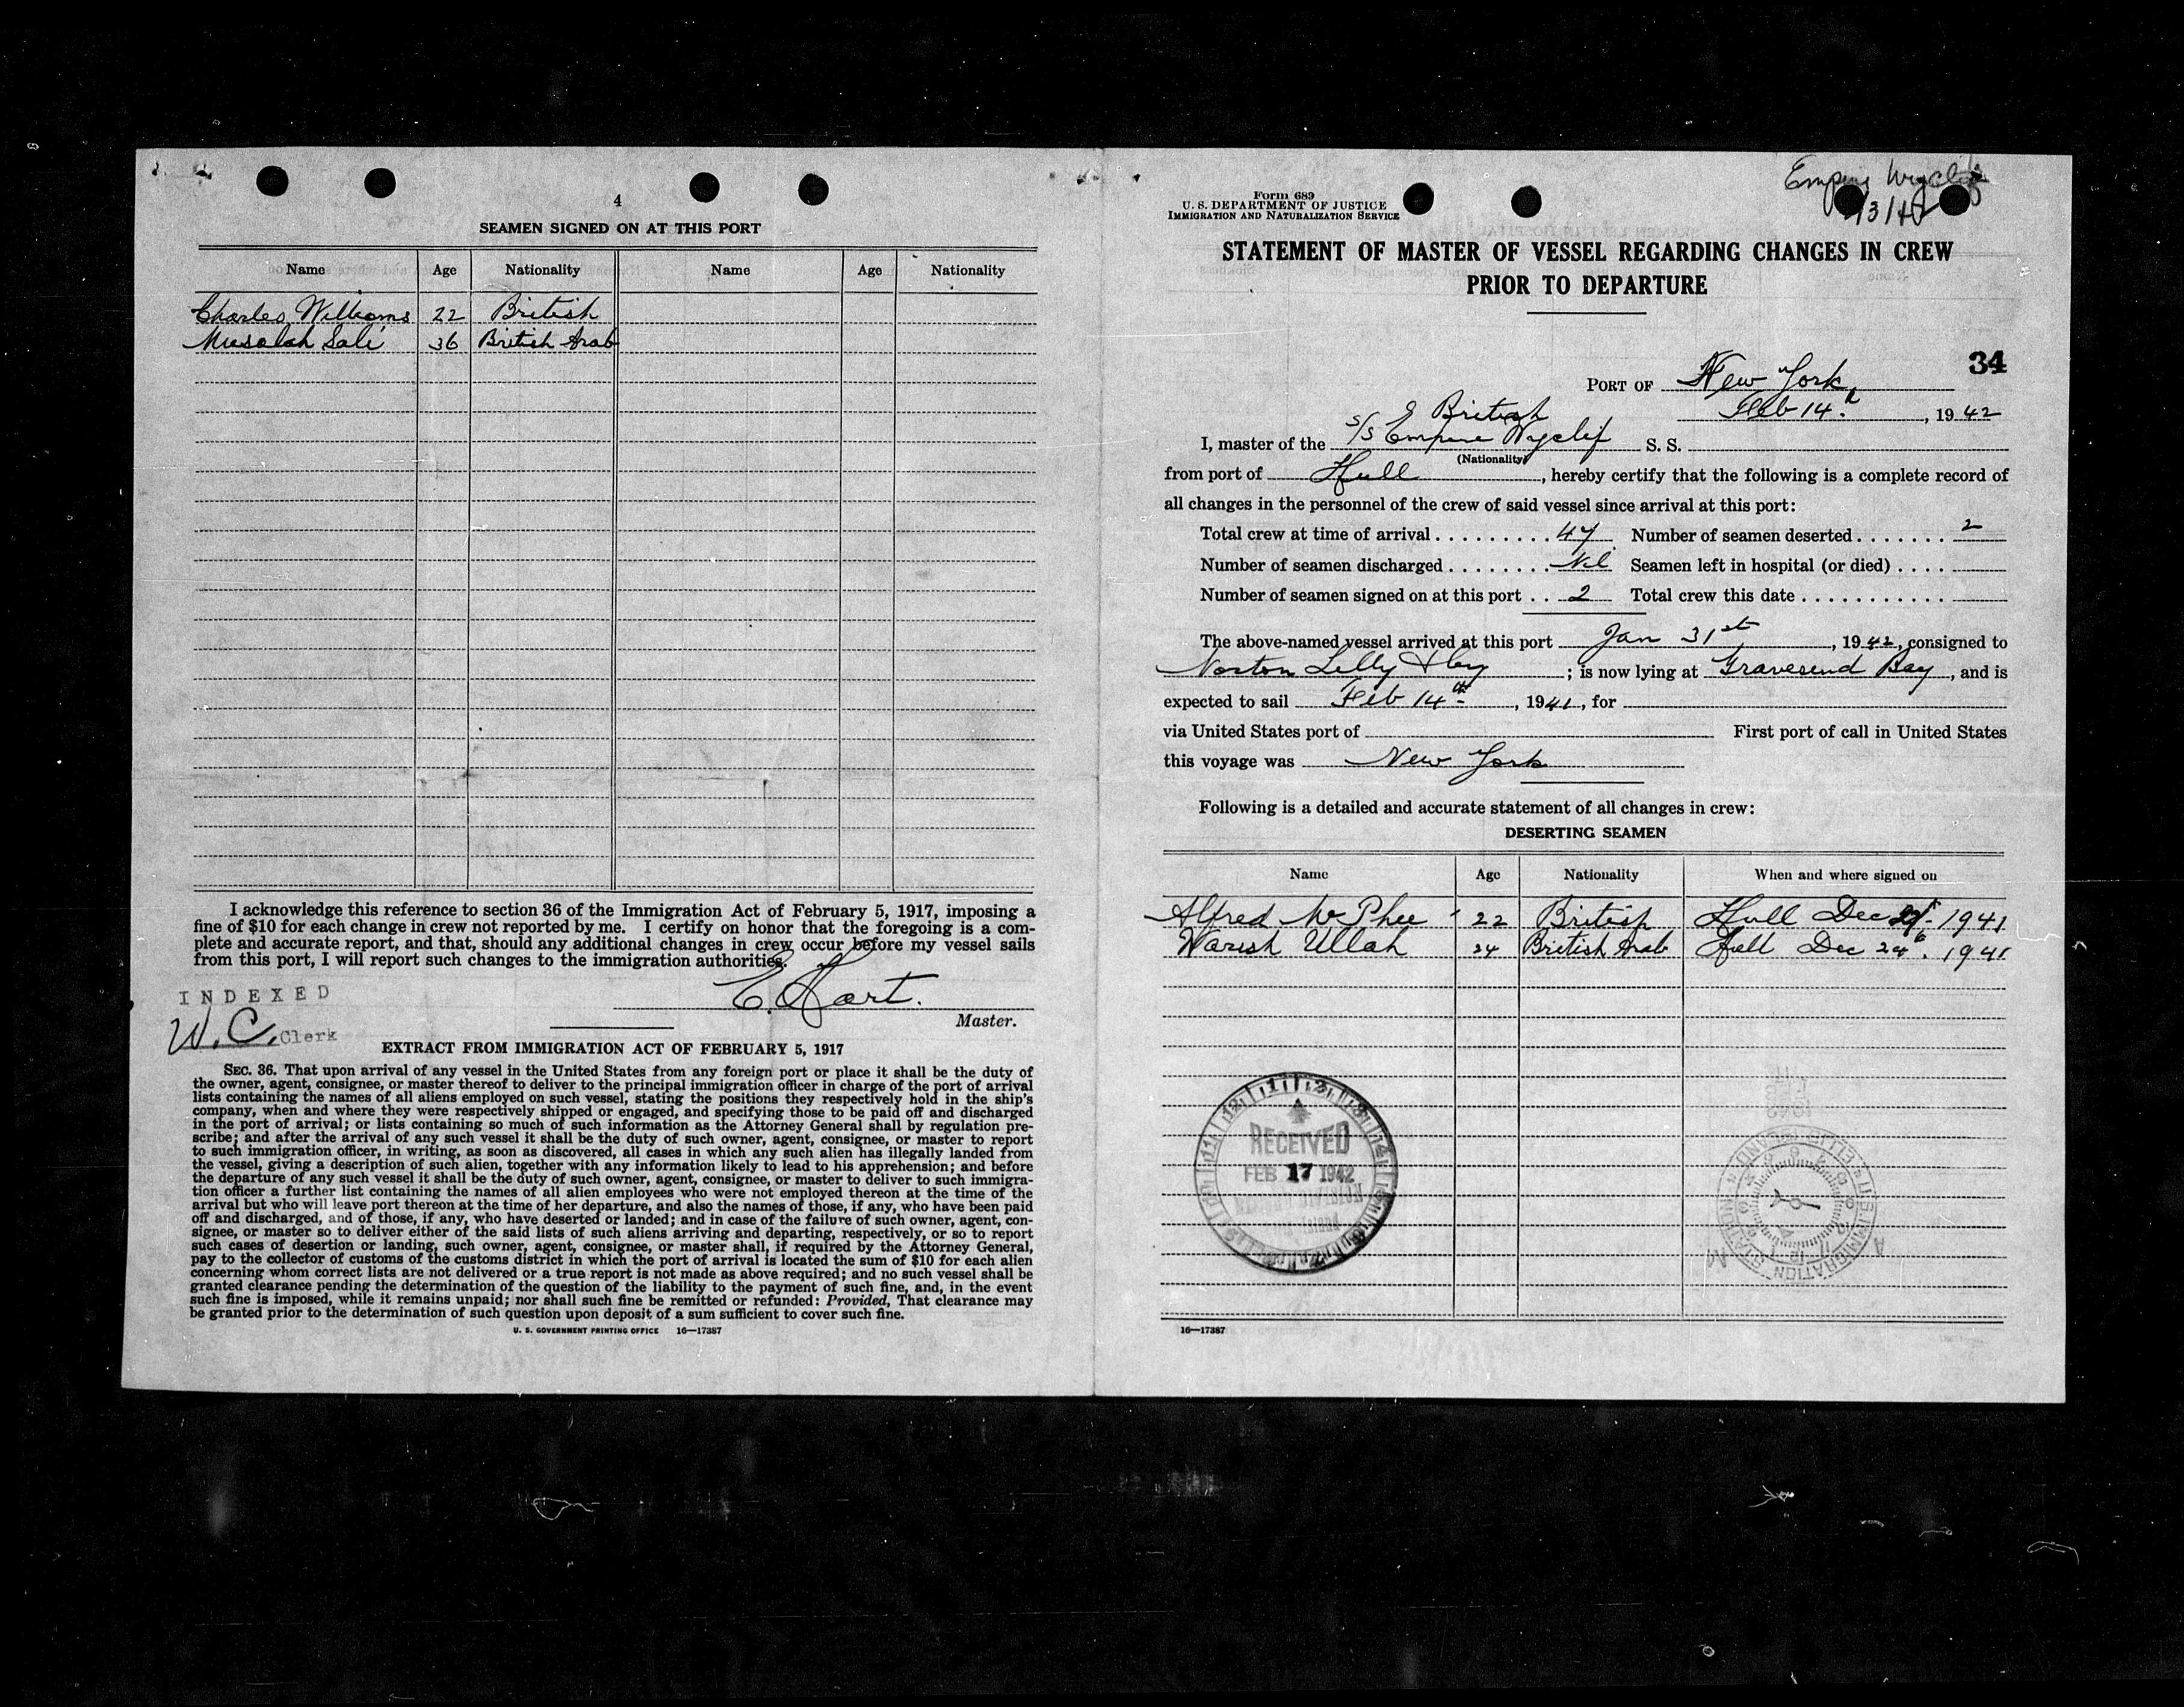 4
SEAMEN SIGNED ON AT THIS PORT
Name Age Nationality Name Age Nationality
Charles Williams 22 British
Musalah Sali 36 British Arab
I acknowledge this reference to section 36 of the Immigration Act of February 5, 1917, imposing a
fine of $10 for each change in crew not reported by me. I certify on honor that the foregoing is a com-
plete and accurate report, and that, should any additional changes in crew occur before my vessel sails
from this port, I will report such changes to the immigration authorities.
E. Hart.
Master.
INDEXED
W. C. Clerk
EXTRACT FROM IMMIGRATION ACT OF FEBRUARY 5, 1917
SEC. 36. That upon arrival of any vessel in the United States from any foreign port or place it shall be the duty of
the owner, agent, consignee, or master thereof to deliver to the principal immigration officer in charge of the port of arrival
lists containing the names of all aliens employed on such vessel, stating the positions they respectively hold in the ship's
company, when and where they were respectively shipped or engaged, and specifying those to be paid off and discharged
in the port of arrival; or lists containing so much of such information as the Attorney General shall by regulation pre-
scribe; and after the arrival of any such vessel it shall be the duty of such owner, agent, consignee, or master to report
to such immigration officer, in writing, as soon as discovered, all cases in which any such alien has illegally landed from
the vessel, giving a description of such alien, together with any information likely to lead to his apprehension; and before
the departure of any such vessel it shall be the duty of such owner, agent, consignee, or master to deliver to such immigra-
tion officer a further list containing the names of all alien employees who were not employed thereon at the time of the
arrival but who will leave port thereon at the time of her departure, and also the names of those, if any, who have been paid
off and discharged, and of those, if any, who have deserted or landed; and in case of the failure of such owner, agent, con-
signee, or master so to deliver either of the said lists of such aliens arriving and departing, respectively, or so to report
such cases of desertion or landing, such owner, agent, consignee, or master shall, if required by the Attorney General,
pay to the collector of customs of the customs district in which the port of arrival is located the sum of $10 for each alien
concerning whom correct lists are not delivered or a true report is not made as above required; and no such vessel shall be
granted clearance pending the determination of the question of the liability to the payment of such fine, and, in the event
such fine is imposed, while it remains unpaid; nor shall such fine be remitted or refunded: Provided, That clearance may
be granted prior to the determination of such question upon deposit of a sum sufficient to cover such fine.
U. S. GOVERNMENT PRINTING OFFICE 16—17387
Empire Wyclif
Form 689
U. S. DEPARTMENT OF JUSTICE
IMMIGRATION AND NATURALIZATION SERVICE
STATEMENT OF MASTER OF VESSEL REGARDING CHANGES IN CREW
PRIOR TO DEPARTURE
34
PORT OF New York
Feb 14th, 1942
British
I, master of the S/S Empire Wyclif S. S.
(Nationality)
from port of Hull, hereby certify that the following is a complete record of
all changes in the personnel of the crew of said vessel since arrival at this port:
Total crew at time of arrival . . . . . . . . . 47 Number of seamen deserted . . . . . . . 2
Number of seamen discharged . . . . . . . . Nil Seamen left in hospital (or died) . . . .
Number of seamen signed on at this port . . 2 Total crew this date . . . . . . . . . . .
The above-named vessel arrived at this port Jan 31st, 1942, consigned to
Norton Lilly & Coy; is now lying at Gravesend Bay, and is
expected to sail Feb 14th, 1941, for
via United States port of First port of call in United States
this voyage was New York
Following is a detailed and accurate statement of all changes in crew:
DESERTING SEAMEN
Name Age Nationality When and where signed on
Alfred McPhee 22 British Hull Dec 1941
Warish Ullah 24 British Arab Hull Dec 24th 1941
RECEIVED
FEB 17 1942
16—17387